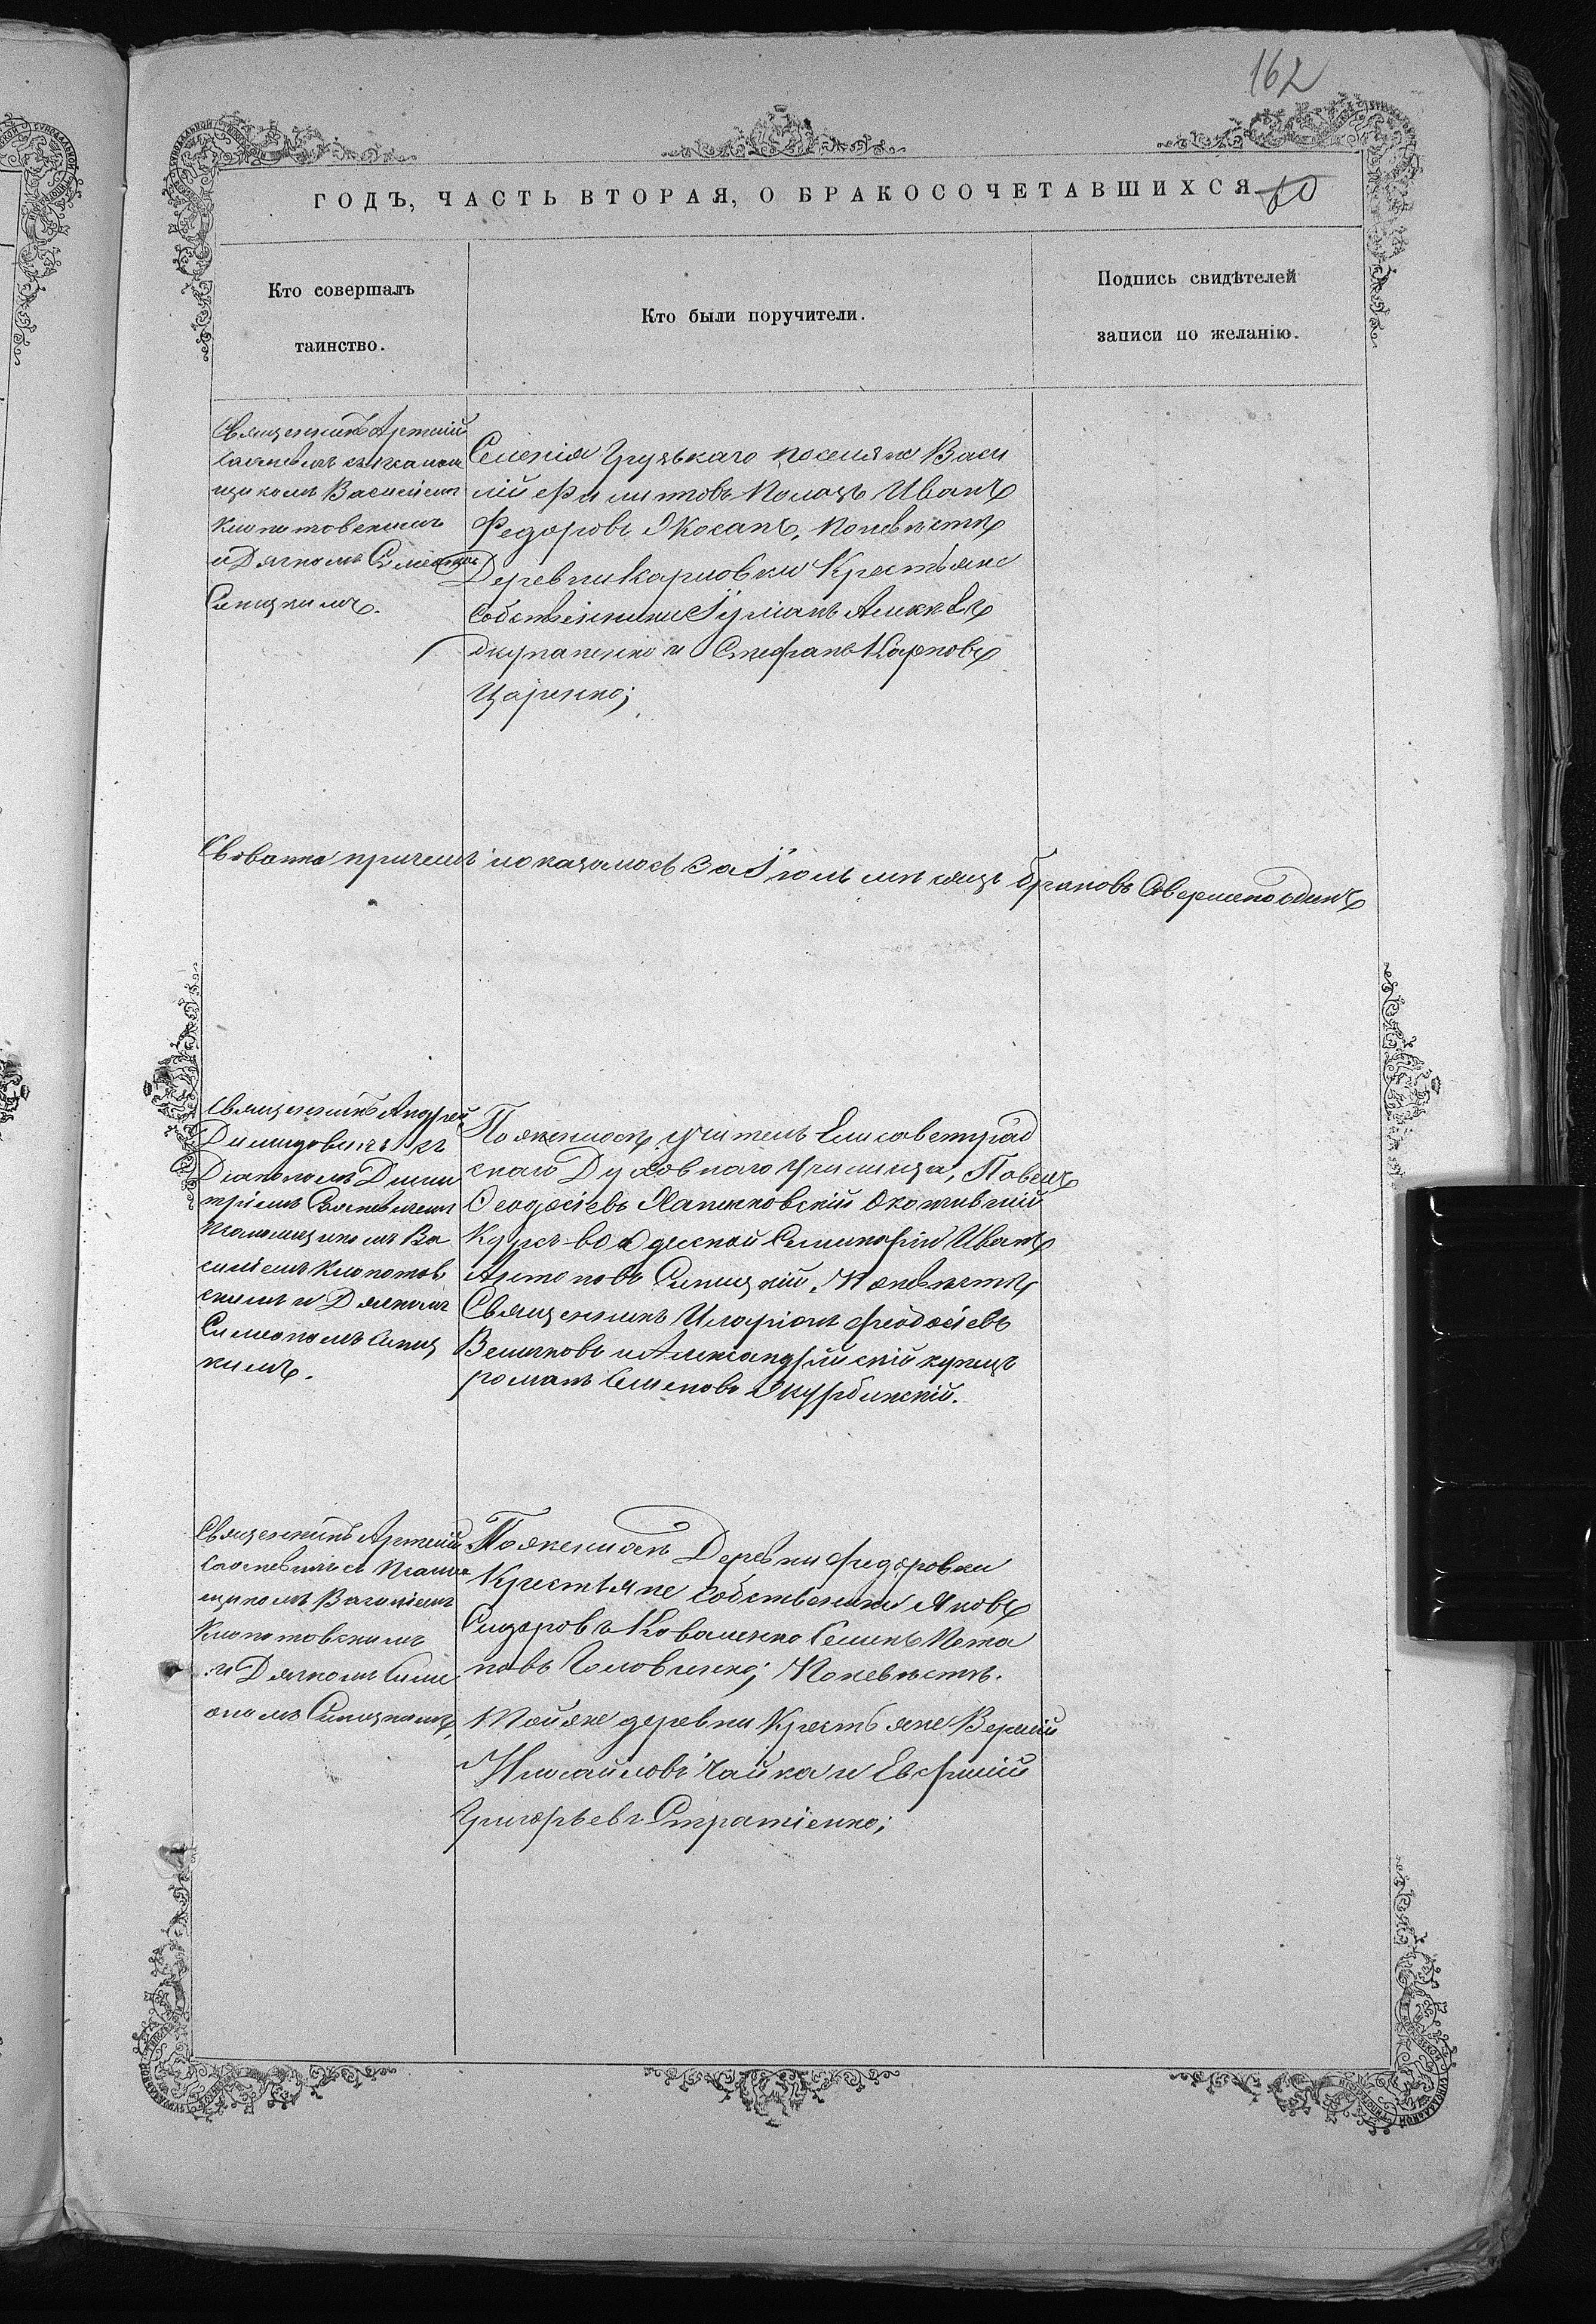 162
ГОДЪ, ЧАСТЬ ВТОРАЯ, О БРАКОСОЧЕТАВШИХСЯ
60
Кто совершалъ
таинство.
Кто были поручители.
Подпись свидѣтелей
записи по желанію.
Священникъ Артемій
съ псалом
щикомъ Василіемъ
Клопотовскимъ
и Дьячкомъ Симеономъ
Синицкимъ.
Селенія Грузькаго поселяне Васи
лій Филиповъ Иванъ
Федоровъ Косанъ, по невѣстѣ
Деревни Карловки Крестьяне
собственники Гуліанъ
и Стефанъ Карповъ
Царенко;
причемъ показалось За Іюль мѣсяцъ браковъ Совершено одинъ
Священникъ Андрей
Димидовичъ съ
Діакономъ Дими
тріемъ
псаломщикомъ Ва
силіемъ Клопотов
скимъ и Дьячкомъ
Симеономъ Синиц
кимъ.
По женихѣ учитель Елисаветград
скаго Духовнаго училища, Павелъ
Феодосіевъ Окончившій
Курсъ во Одесской Семинаріи Иванъ
Антоновъ Синицкій. По невѣстѣ
Священникъ Иларіонъ Феодосіевъ
Величковъ и Александрійскій купецъ
романъ Семеновъ
Священникъ Артемій
съ Псалом
щикомъ Василіемъ
Клопотовскимъ
и Дьячкомъ Симе
ономъ Синицкимъ.
По женихѣ Деревни Федоровки
Крестьяне собственники Яковъ
Сидоровъ Коваленко Семенъ Пота
повъ Головченко; По невѣстѣ.
Той же деревни Крестьяне
Михайловъ Чайка и Евфимій
Григорьевъ Стратіенко;